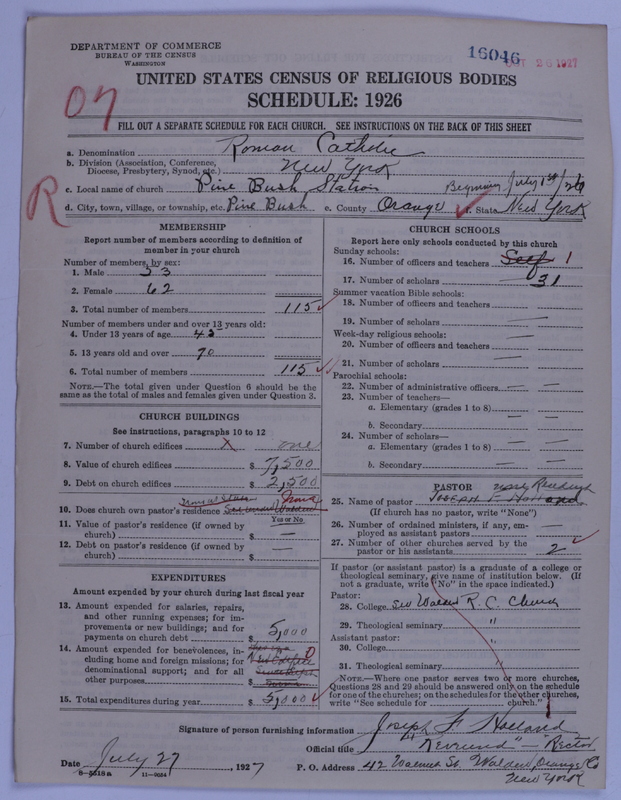 DEPARTMENT OF COMMERCE
BUREAU OF THE CENSUS
WASHINGTON
16046
OCT 26 1927
UNITED STATES CENSUS OF RELIGIOUS BODIES
SCHEDULE: 1926
FILL OUT A SEPARATE SCHEDULE FOR EACH CHURCH. SEE INSTRUCTIONS ON THE BACK OF THIS SHEET
a. Denomination Roman Catholic
b. Division (Association, Conference, Diocese, Presbytery, Synod, etc.) New York
c. Local name of church Pine Bush Station July 1st/26
d. City, town, village, or township, etc. Pine Bush e. County Orange f. State New York
R
MEMBERSHIP
Report number of members according to definition of
member in your church
Number of members, by sex:
1. Male 53
2. Female 62
3. Total number of members 115
Number of members under and over 13 years old:
4. Under 13 years of age 45
5. 13 years old and over 70
6. Total number of members 115
NOTE.—The total given under Question 6 should be the
same as the total of males and females given under Question 3.
CHURCH BUILDINGS
See instructions, paragraphs 10 to 12
7. Number of church edifices x one
8. Value of church edifices $ 7,500
9. Debt on church edifices $ 2,500
10. Does church own pastor's residence
Yes or No
11. Value of pastor's residence (if owned by
church) $ —
12. Debt on pastor's residence (if owned by
church) $ —
EXPENDITURES
Amount expended by your church during last fiscal year
13. Amount expended for salaries, repairs,
and other running expenses; for im-
provements or new buildings; and for
payments on church debt $ 5,000
14. Amount expended for benevolences, in-
cluding home and foreign missions; for
denominational support; and for all
other purposes $ 0
15. Total expenditures during year $ 5,000
CHURCH SCHOOLS
Report here only schools conducted by this church
Sunday schools:
16. Number of officers and teachers Self 1
17. Number of scholars 31
Summer vacation Bible schools:
18. Number of officers and teachers —
19. Number of scholars —
Week-day religious schools:
20. Number of officers and teachers —
21. Number of scholars —
Parochial schools:
22. Number of administrative officers —
23. Number of teachers—
a. Elementary (grades 1 to 8) —
b. Secondary —
24. Number of scholars—
a. Elementary (grades 1 to 8) —
b. Secondary —
PASTOR
25. Name of pastor Joseph F Holland
(If church has no pastor, write "None")
26. Number of ordained ministers, if any, em-
ployed as assistant pastors —
27. Number of other churches served by the
pastor or his assistants 2
If pastor (or assistant pastor) is a graduate of a college or
theological seminary, give name of institution below. (If
not a graduate, write "No" in the space indicated.)
Pastor:
28. College See Walden R. C. Church
29. Theological seminary "
Assistant pastor:
30. College "
31. Theological seminary "
NOTE.—Where one pastor serves two or more churches,
Questions 28 and 29 should be answered only on the schedule
for one of the churches; on the schedules for the other churches,
write "See schedule for church."
Signature of person furnishing information Joseph F Holland
Official title "Reverend" — Rector
Date July 27, 1927 P. O. Address 42 Walnut St. Walden, Orange Co
New York
8—3518a 11—9054